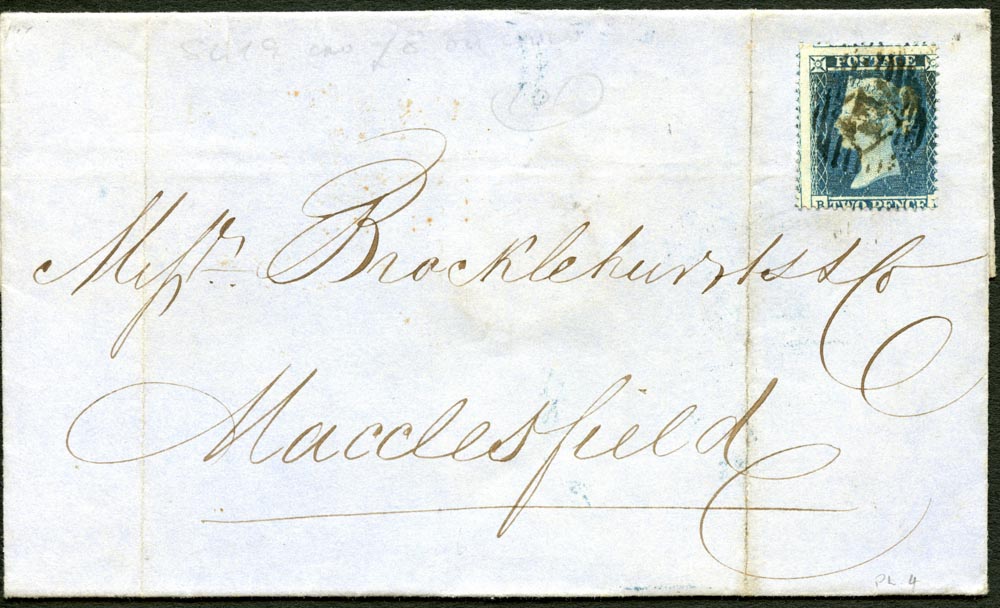 POSTAGE
TWO PENCE
Messrs Brocklehursts & Co
Macclesfield
PL 4